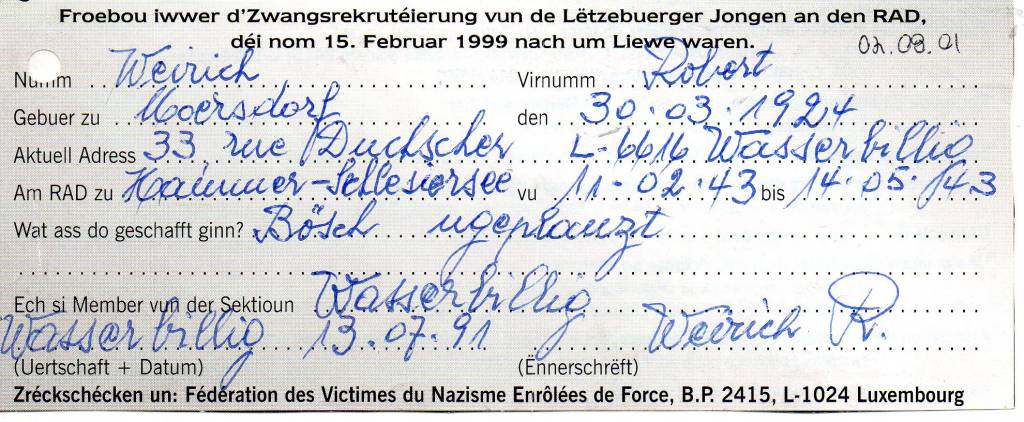 Froebou iwwer d'Zwangsrekrutéierung vun de Lëtzebuerger Jongen an den RAD,
déi nom 15. Februar 1999 nach um Liewe waren. 02.08.01
Numm Weirich Virnumm Robert
Gebuer zu Moersdorf den 30.03.1924
Aktuell Adress 33 rue Duchscher L-6616 Wasserbillig
Am RAD zu Hammer-Schlesiersee vu 11.02.43 bis 14.05.43
Wat ass do geschafft ginn? Bösch ugeplanzt
Ech si Member vun der Sektioun Wasserbillig
Wasserbillig 13.07.91 Weirich R.
(Uertschaft + Datum) (Ënnerschrëft)
Zréckschécken un: Fédération des Victimes du Nazisme Enrôlées de Force, B.P. 2415, L-1024 Luxembourg